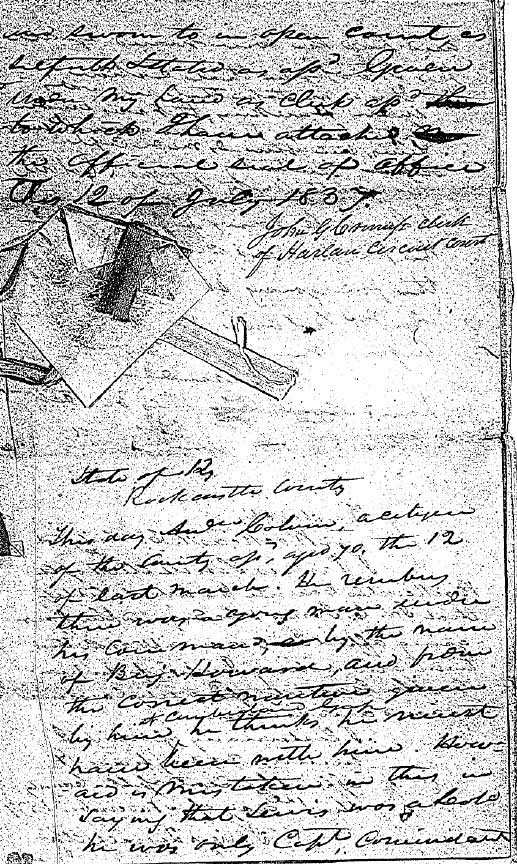 was sworn to in open court as
State as afsd Given
under my hand as Clerk afsd
to which I have attached
the official seal of office
This 12 of July 1837
John G Clerk
of Harlan Circuit Court
State of Ky
Rockcastle County
This day a citizen
of the County afsd, aged 70, the 12
of last march. He
there was a young man under
his command by the name
of Benj Howard, and from
the correct given
by him he thinks he must
have been with him. How-
ard is mistaken in this in
saying that Lewis was a Colo
he was only Capt, Comendant